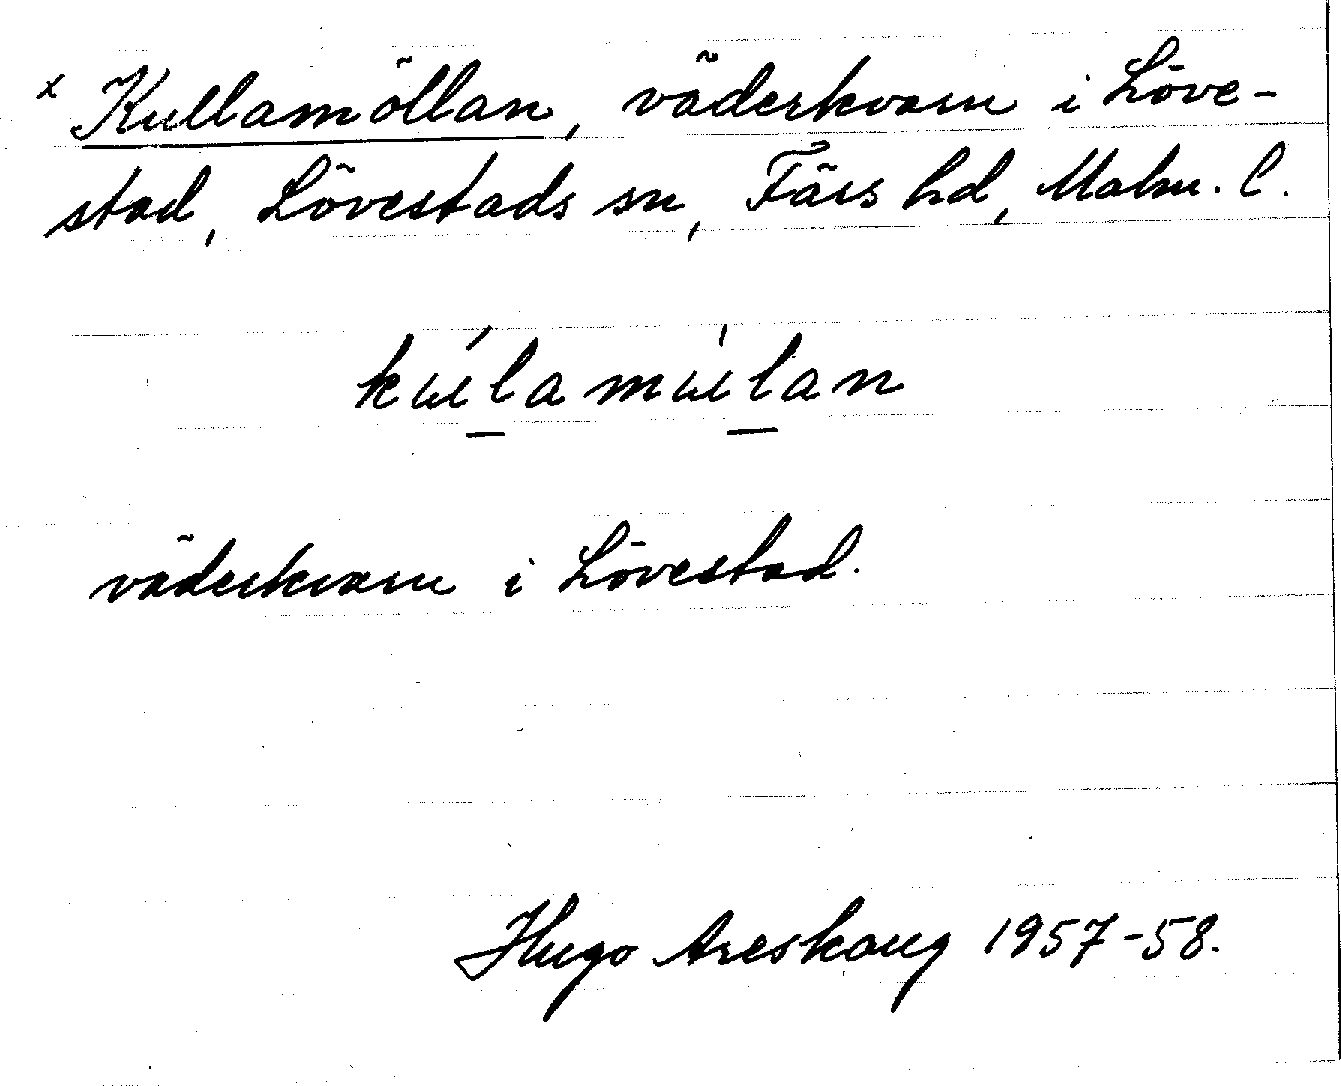 x Kullamöllan, väderkvarn i Löve-
stad, Lövestads sn, Färs hd, Malm. l.
kúlamùlan
väderkvarn i Lövestad.
Hugo Areskoug 1957-58.